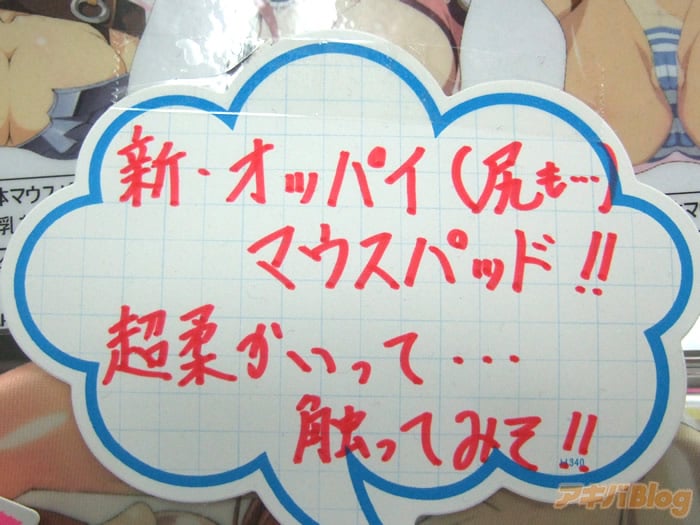 新・オッパイ(尻も…)
マウスパッド!!
超柔かいって・・・
触ってみそ!!
L340
アキバBlog